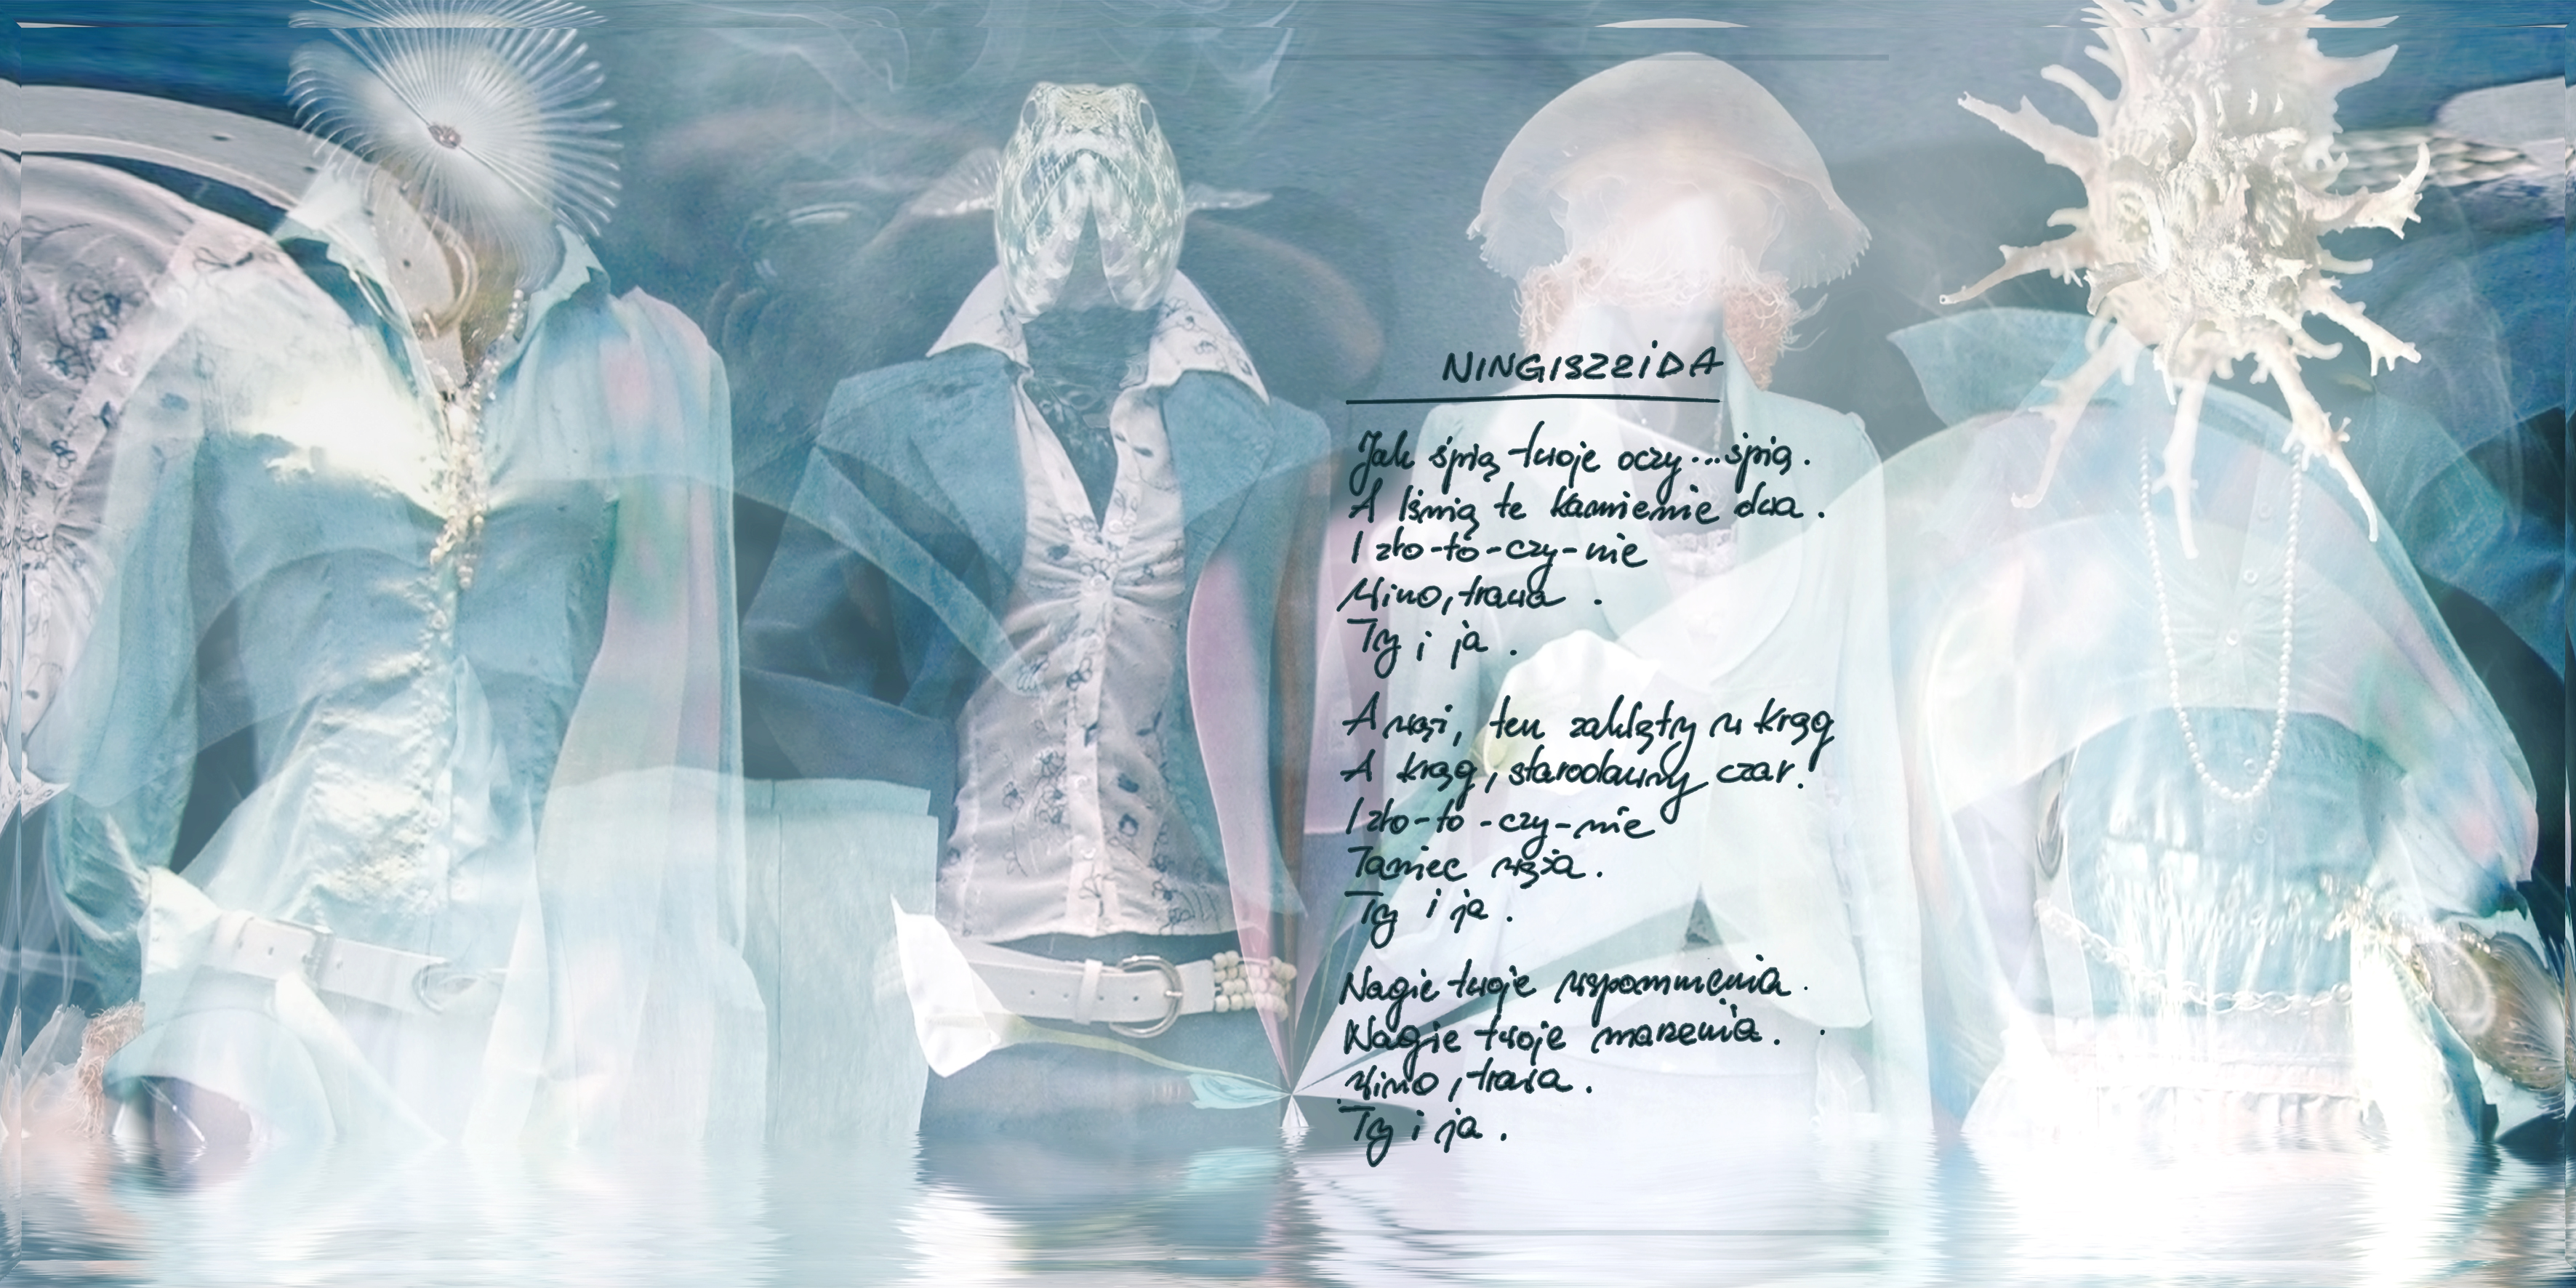 NINGISZZIDA
Jak śpią twoje oczy...śpią.
A lśnią te kamienie dwa.
I zło-to-czy-nie
Wino, trawa.
Ty i ja.
A wąż, ten zaklęty w krąg
A krąg, starodawny czar.
I zło-to-czy-nie
Taniec węża.
Ty i ja.
Nagie twoje wspomnienia.
Nagie twoje marzenia.
Wino, trawa.
Ty i ja.